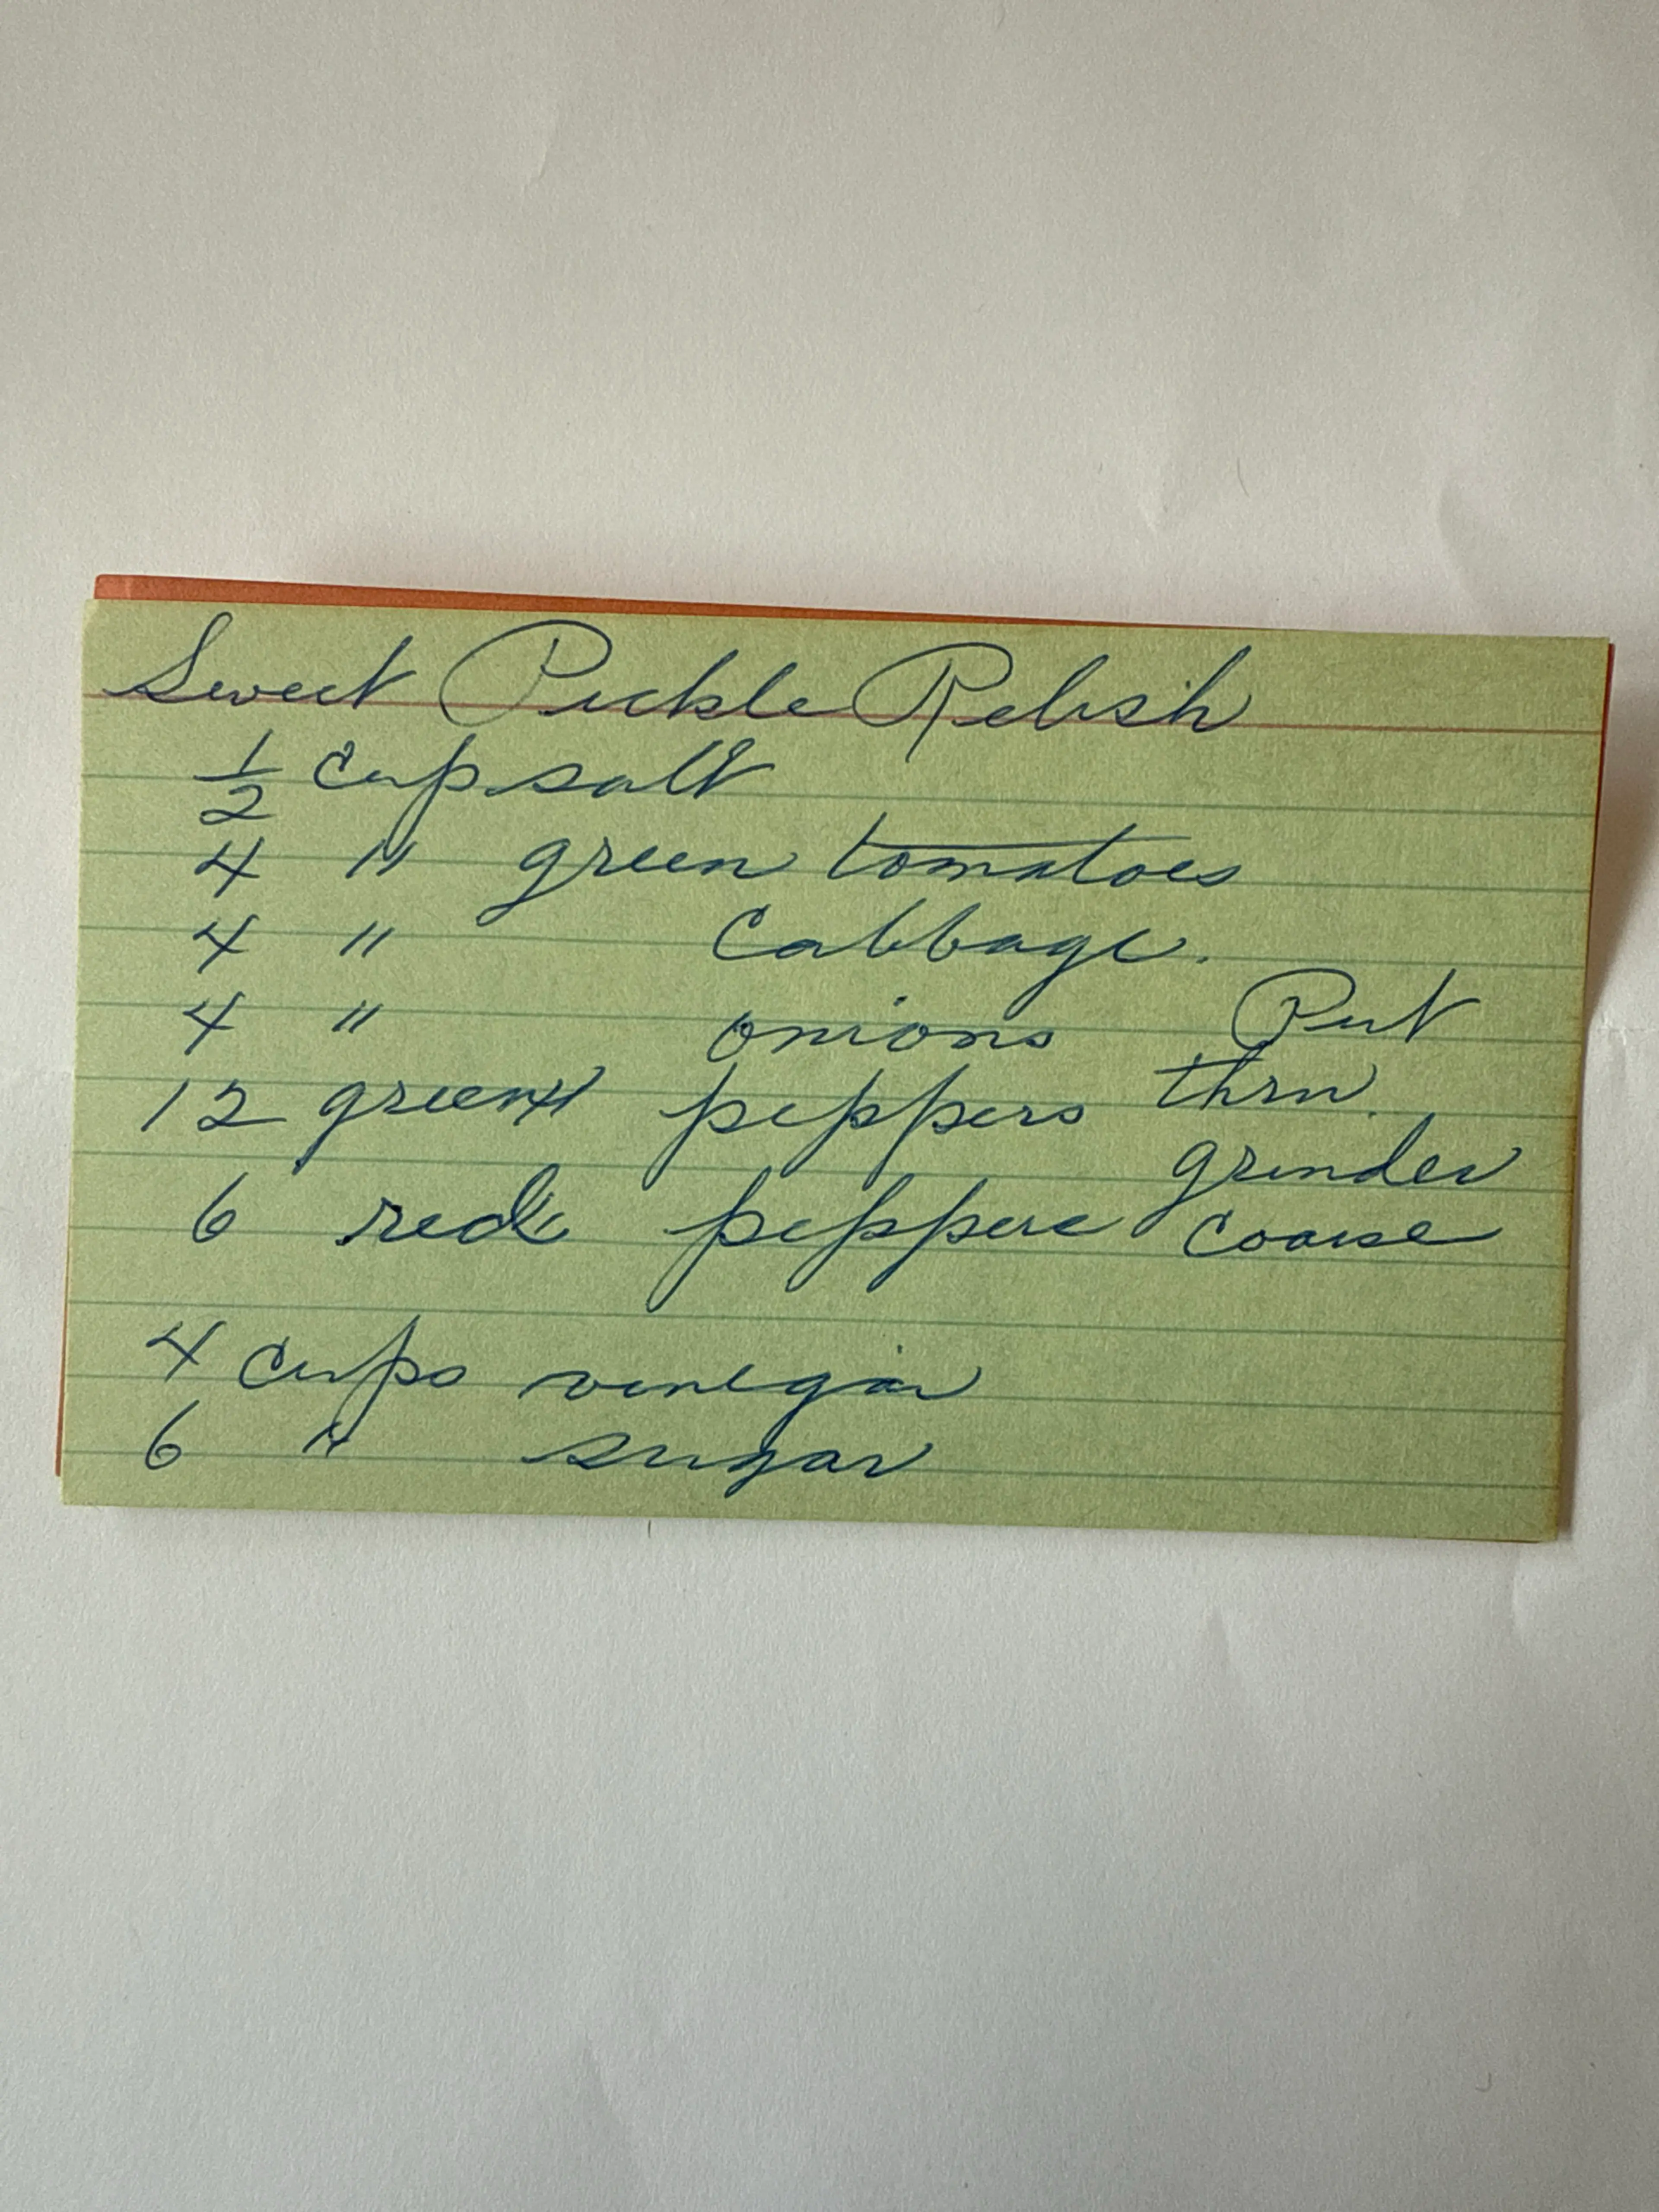 Sweet Pickle Relish
1/2 cup salt
4 " green tomatoes
4 " Cabbage.
4 " onions Put
12 green peppers thru
6 red peppers grinder
coarse
4 cups vinegar
6 " sugar